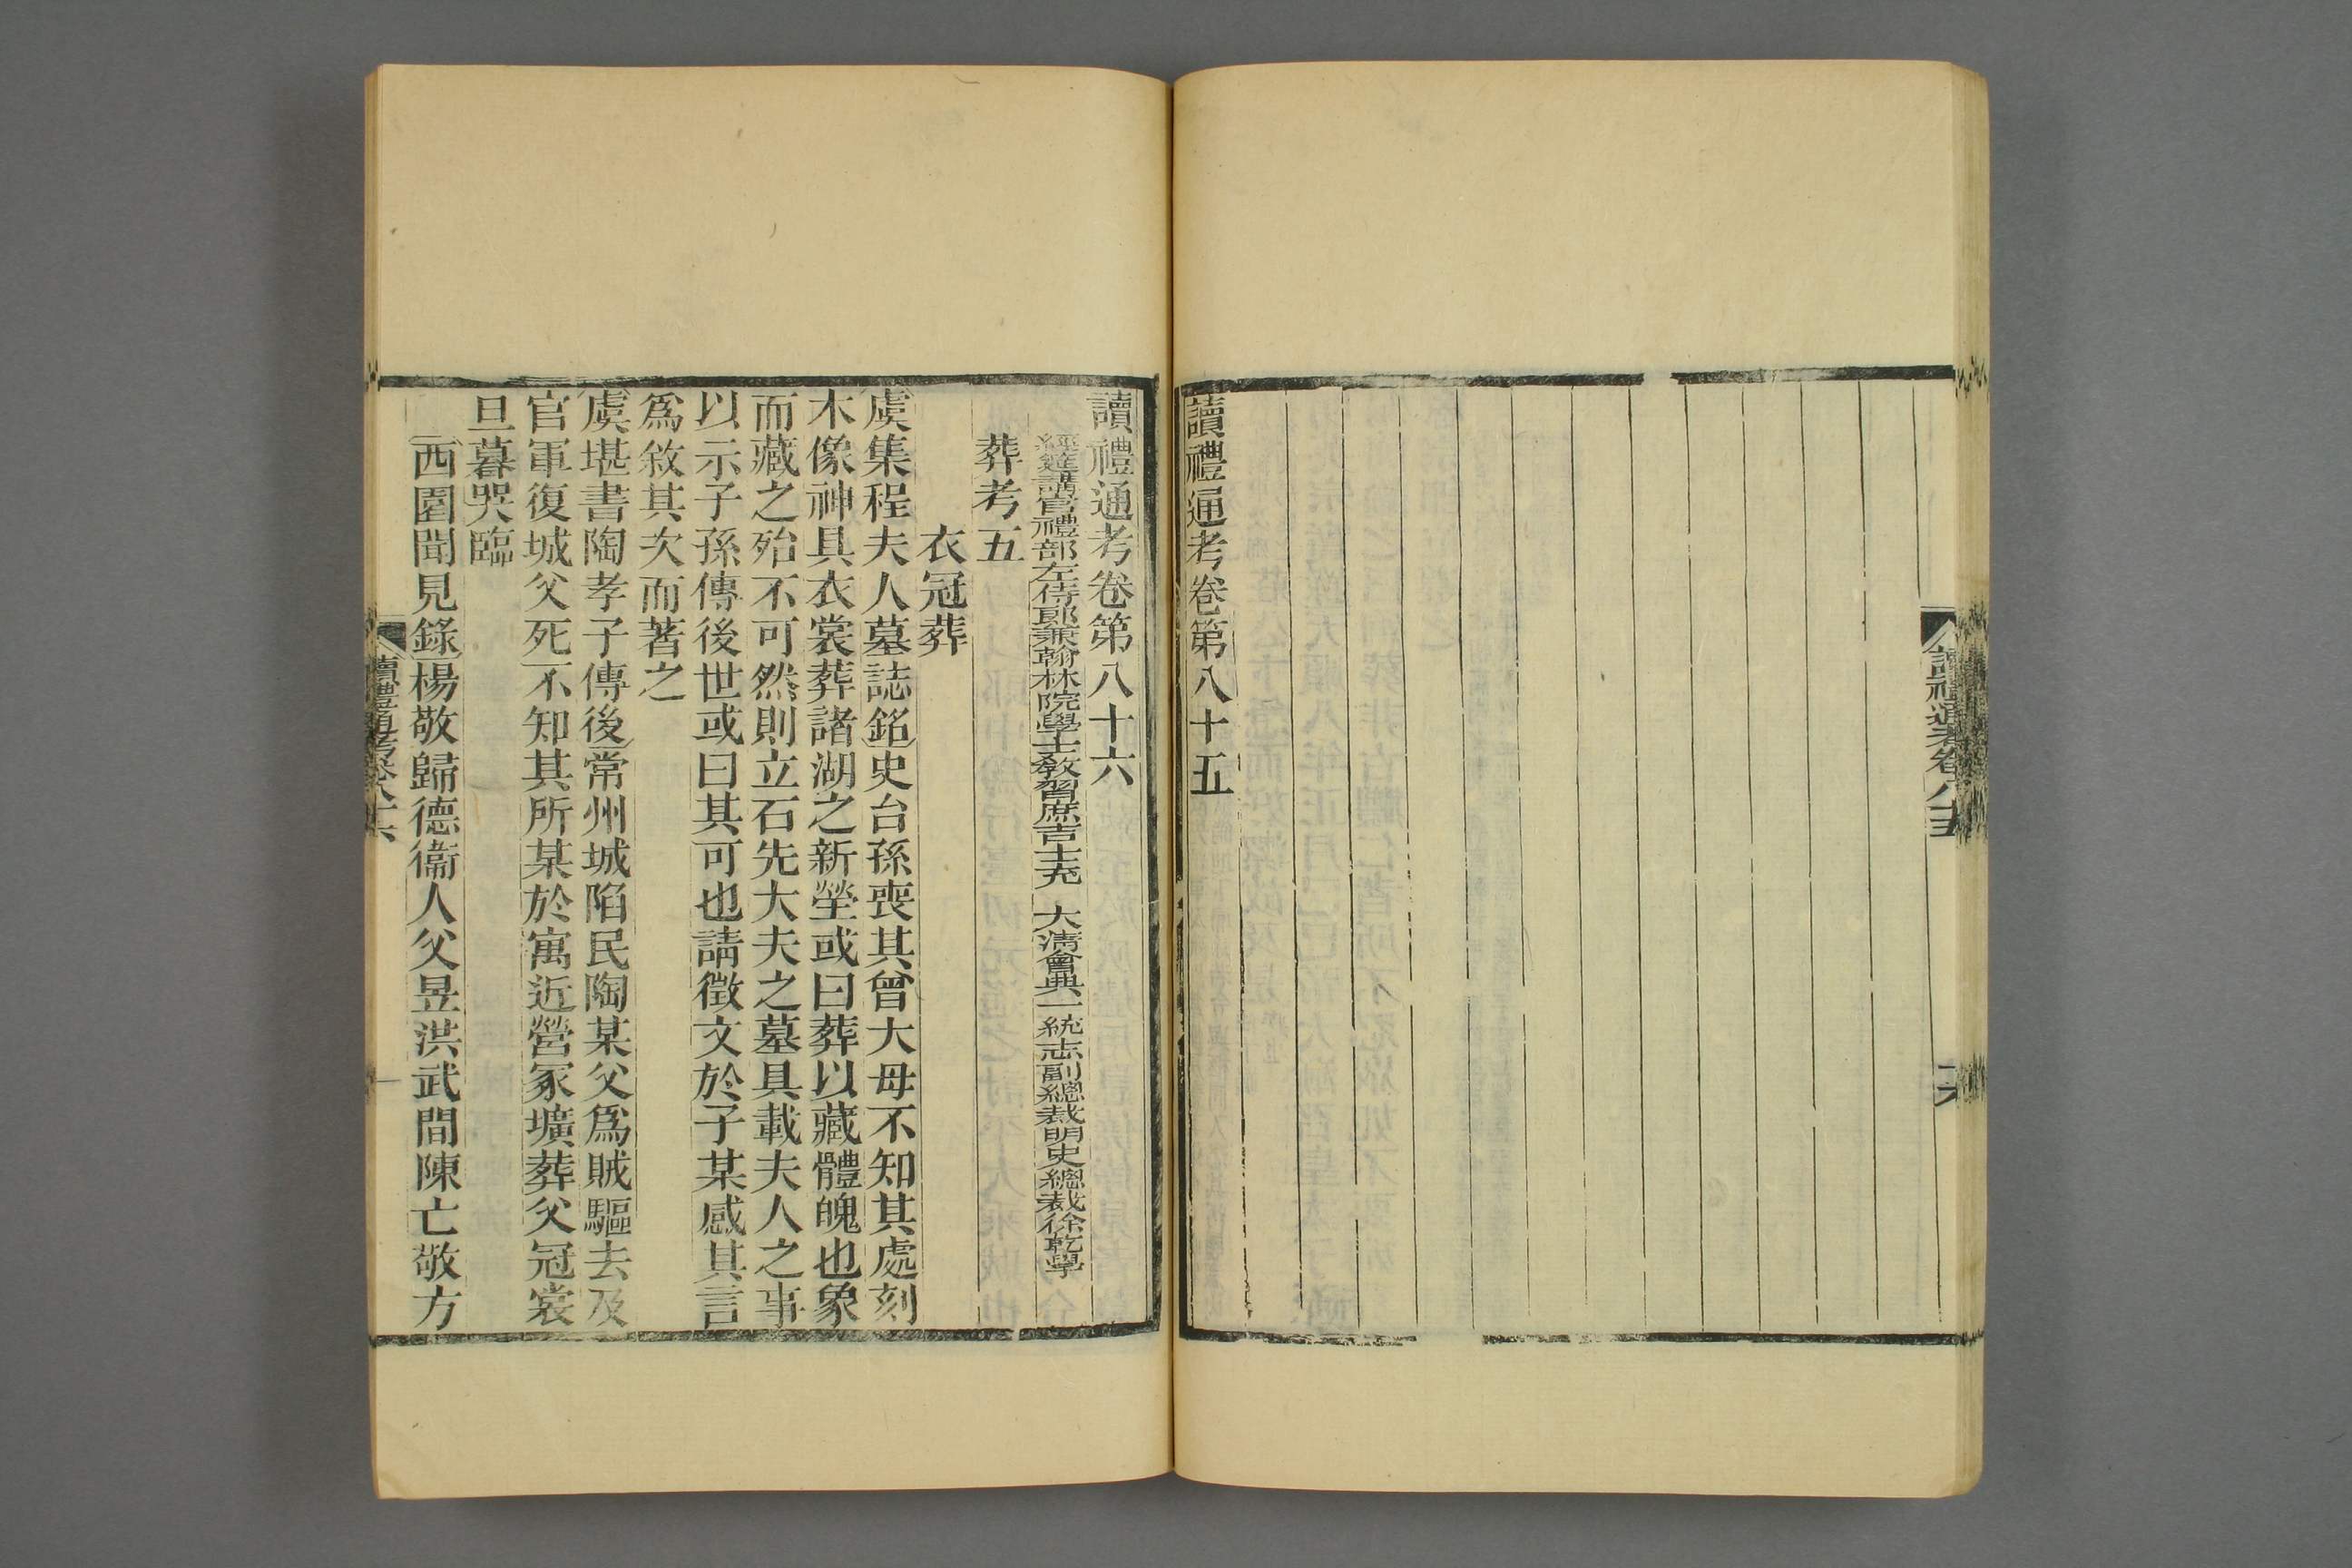 讀禮通考卷八十五
十六
讀禮通考卷第八十五
讀禮通考卷第八十六
經筵講官禮部左侍郎兼翰林院學士教習庶吉士充　大清會典一統志副總裁明史總裁徐乾學
葬考五
衣冠葬
虞集程夫人墓誌銘史台孫喪其曾大母不知其處刻
木像神具衣裳葬諸湖之新塋或曰葬以藏體魄也象
而藏之殆不可然則立石先大夫之墓具載夫人之事
以示子孫傳後世或曰其可也請徵文於子某感其言
爲敘其次而著之
虞堪書陶孝子傳後常州城陷民陶某父爲賊驅去及
官軍復城父死不知其所某於寓近營冢壙葬父冠裳
旦暮哭臨
西園聞見錄楊敬歸德衞人父昱洪武間陳亡敬方
讀禮通考卷八十六
一